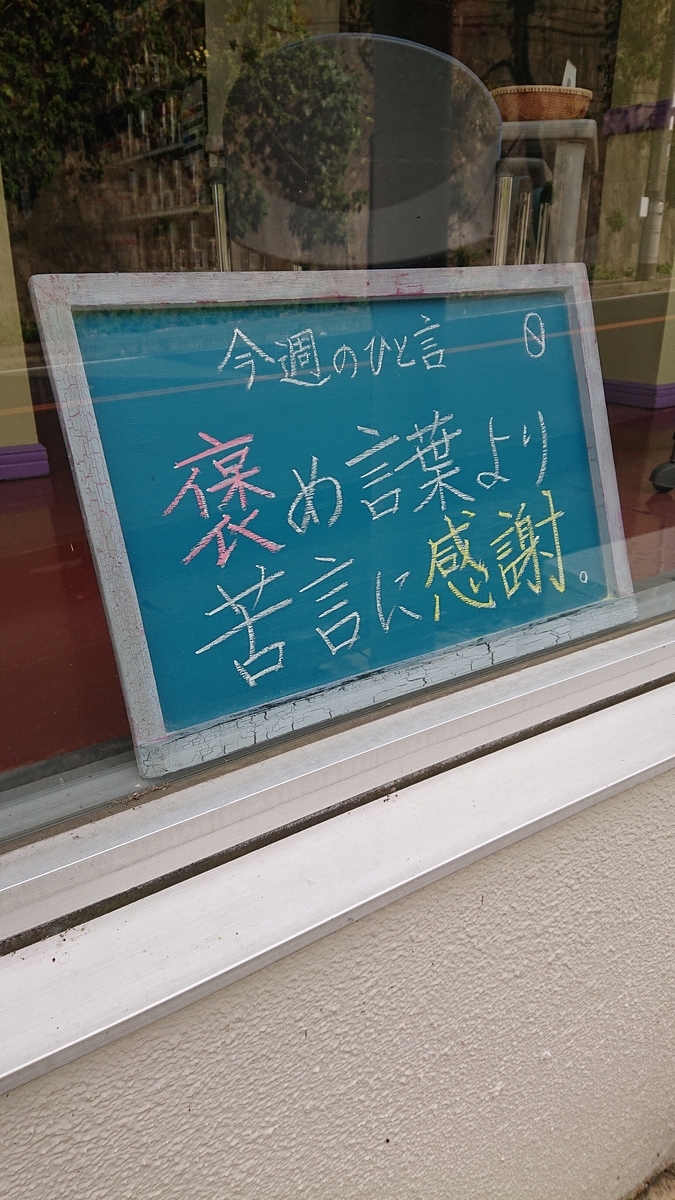 今週のひと言
褒め言葉より
苦言に感謝。